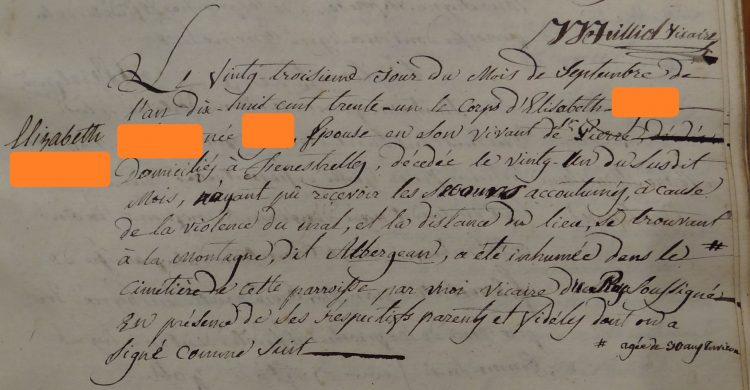 Vicaire
Le Vingt-troisieme Jour du Mois de Septembre de
l'an dix-huit cent trente-un le Corps d'Elisabeth
Elizabeth
née Epouse en son vivant de Pierre
Domiciliés à Fenestrelles, décédée le vingt-un du Susdit
Mois, n'ayant pû recevoir les Secours accoutumés, à cause
de la violence du mal, et la distance du lieu, se trouvant
à la Montagne, dit Albergean, a été inhumée dans le #
Cimetière de cette parroisse par moi Vicaire Soussigné
En présence de Ses respectifs parents et fidèles dont on a
Signé comme Suit
# agée de 30 ans Environ